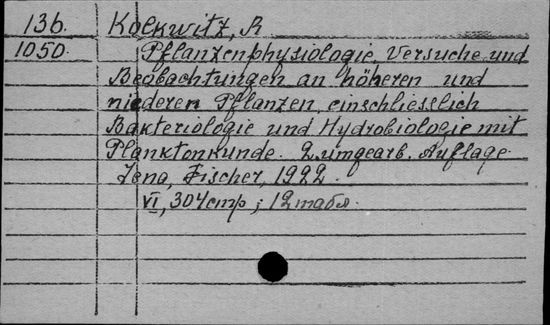 13b. Kolkwitz, R
1050. Pflanzenphysiologie. Versuche und
Beobachtungen an höheren und
niederen Pflanzen, einschliesslich
Bakteriologie und Hydrobiologie mit
Planktonkunde. 2. umgearb. Auflage.
Jena, Fischer, 1922.
VI, 304 стр; 12 табл.